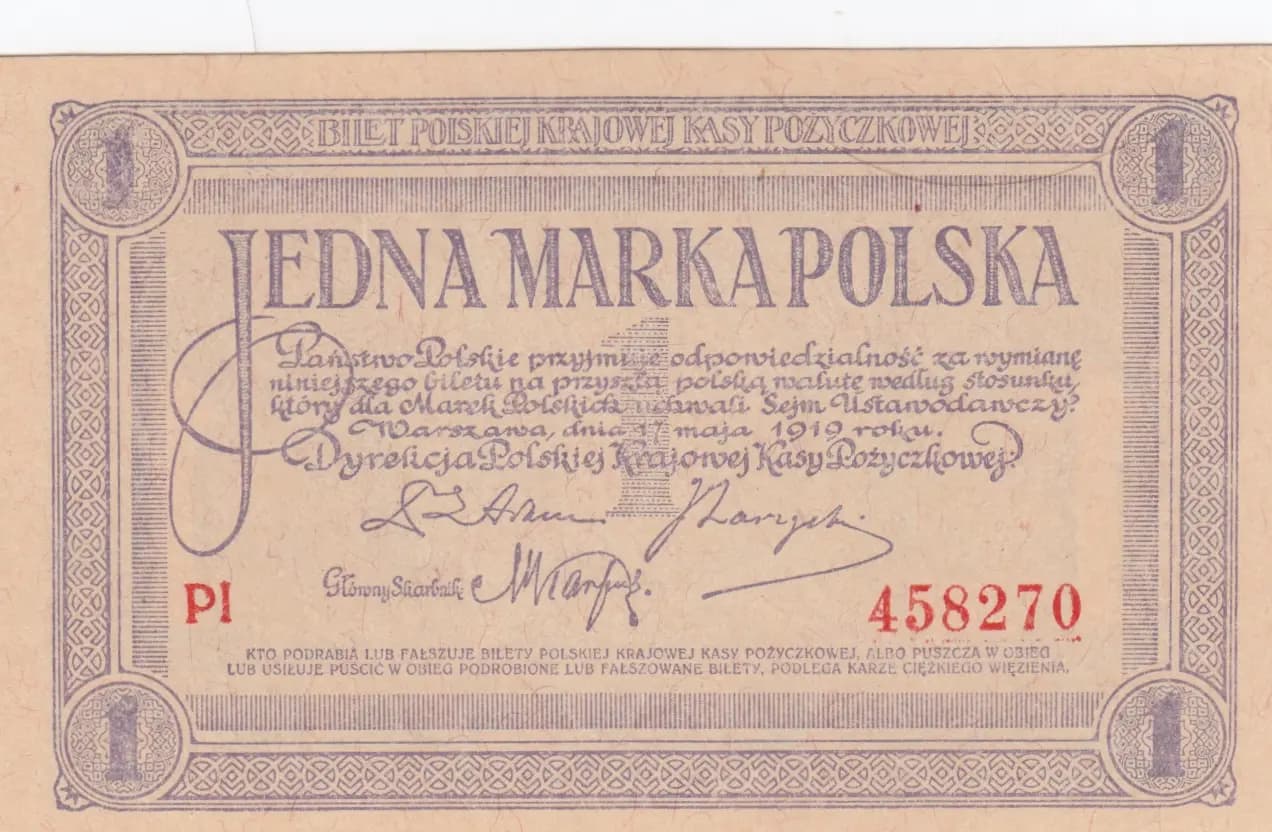 1 BILET POLSKIEJ KRAJOWEJ KASY POŻYCZKOWEJ 1
JEDNA MARKA POLSKA
1
Państwo Polskie przyjmuje odpowiedzialność za wymianę
niniejszego biletu na przyszłą polską walutę według stosunku,
który dla Marek Polskich uchwali Sejm Ustawodawczy.
Warszawa, dnia 17 maja 1919 roku.
Dyrekcja Polskiej Krajowej Kasy Pożyczkowej.
Główny Skarbnik
PI 458270
KTO PODRABIA LUB FAŁSZUJE BILETY POLSKIEJ KRAJOWEJ KASY POŻYCZKOWEJ, ALBO PUSZCZA W OBIEG
LUB USIŁUJE PUŚCIĆ W OBIEG PODROBIONE LUB FAŁSZOWANE BILETY, PODLEGA KARZE CIĘŻKIEGO WIĘZIENIA.
1 1